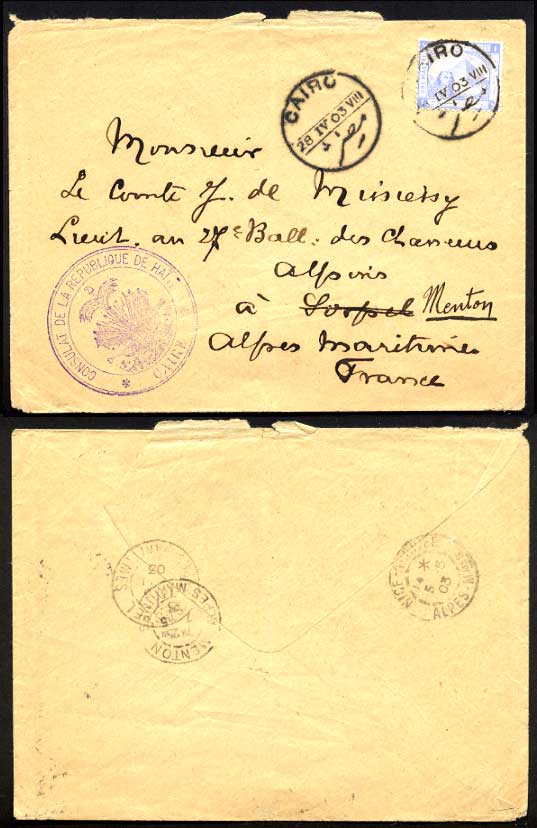 CAIRO
28 IV 03 VIII
مصر
IRO
IV 03 VIII
Monsieur
Le Comte J. de Missiessy
Lieut. au 27e Batt: des Chasseurs
Alpins
à Sospel Menton
Alpes Maritimes
France
CONSULAT DE LA REPUBLIQUE DE HAITI
NICE
5
03
ALPES MMES
03
MENTON